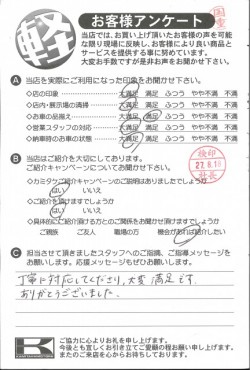 軽
お客様アンケート
当店では、お買い上げ頂いたお客様の声を可能
な限り現場に反映し、お客様により良い商品と
サービスを提供する事に努めています。
大変お手数ですが是非お声をお聞かせ下さい。
A 当店を実際にご利用になった印象をお聞かせ下さい。
◇店の印象 大満足 満足 ふつう やや不満 不満
◇店内・展示場の清掃 大満足 満足 ふつう やや不満 不満
◇お車の品揃え 大満足 満足 ふつう やや不満 不満
◇営業スタッフの対応 大満足 満足 ふつう やや不満 不満
◇納車時のお車の状態 大満足 満足 ふつう やや不満 不満
B 当店はご紹介を大切にしております。
ご紹介キャンペーンについてお聞かせ下さい。
◇カミタケご紹介キャンペーンのご説明はありましたでしょうか
はい いいえ
◇ご紹介を頂けますでしょうか
はい いいえ
◇具体的にご紹介頂ける方とのご関係をお聞かせ頂けますでしょうか
ご親族 ご友人 職場の方 機会があれば紹介したい
検印
27.8.10
社長
C 担当させて頂きましたスタッフへのご指摘、ご指導メッセージを
お願いします。応援メッセージもぜひお願いします。
丁寧に対応してくださり、大変満足です。
ありがとうございました。
K
ご協力に心よりお礼を申し上げます。
今後とも宜しくお引き立てご愛顧の程お願い申し上げます。
またのご来店を心からお待ちしております。